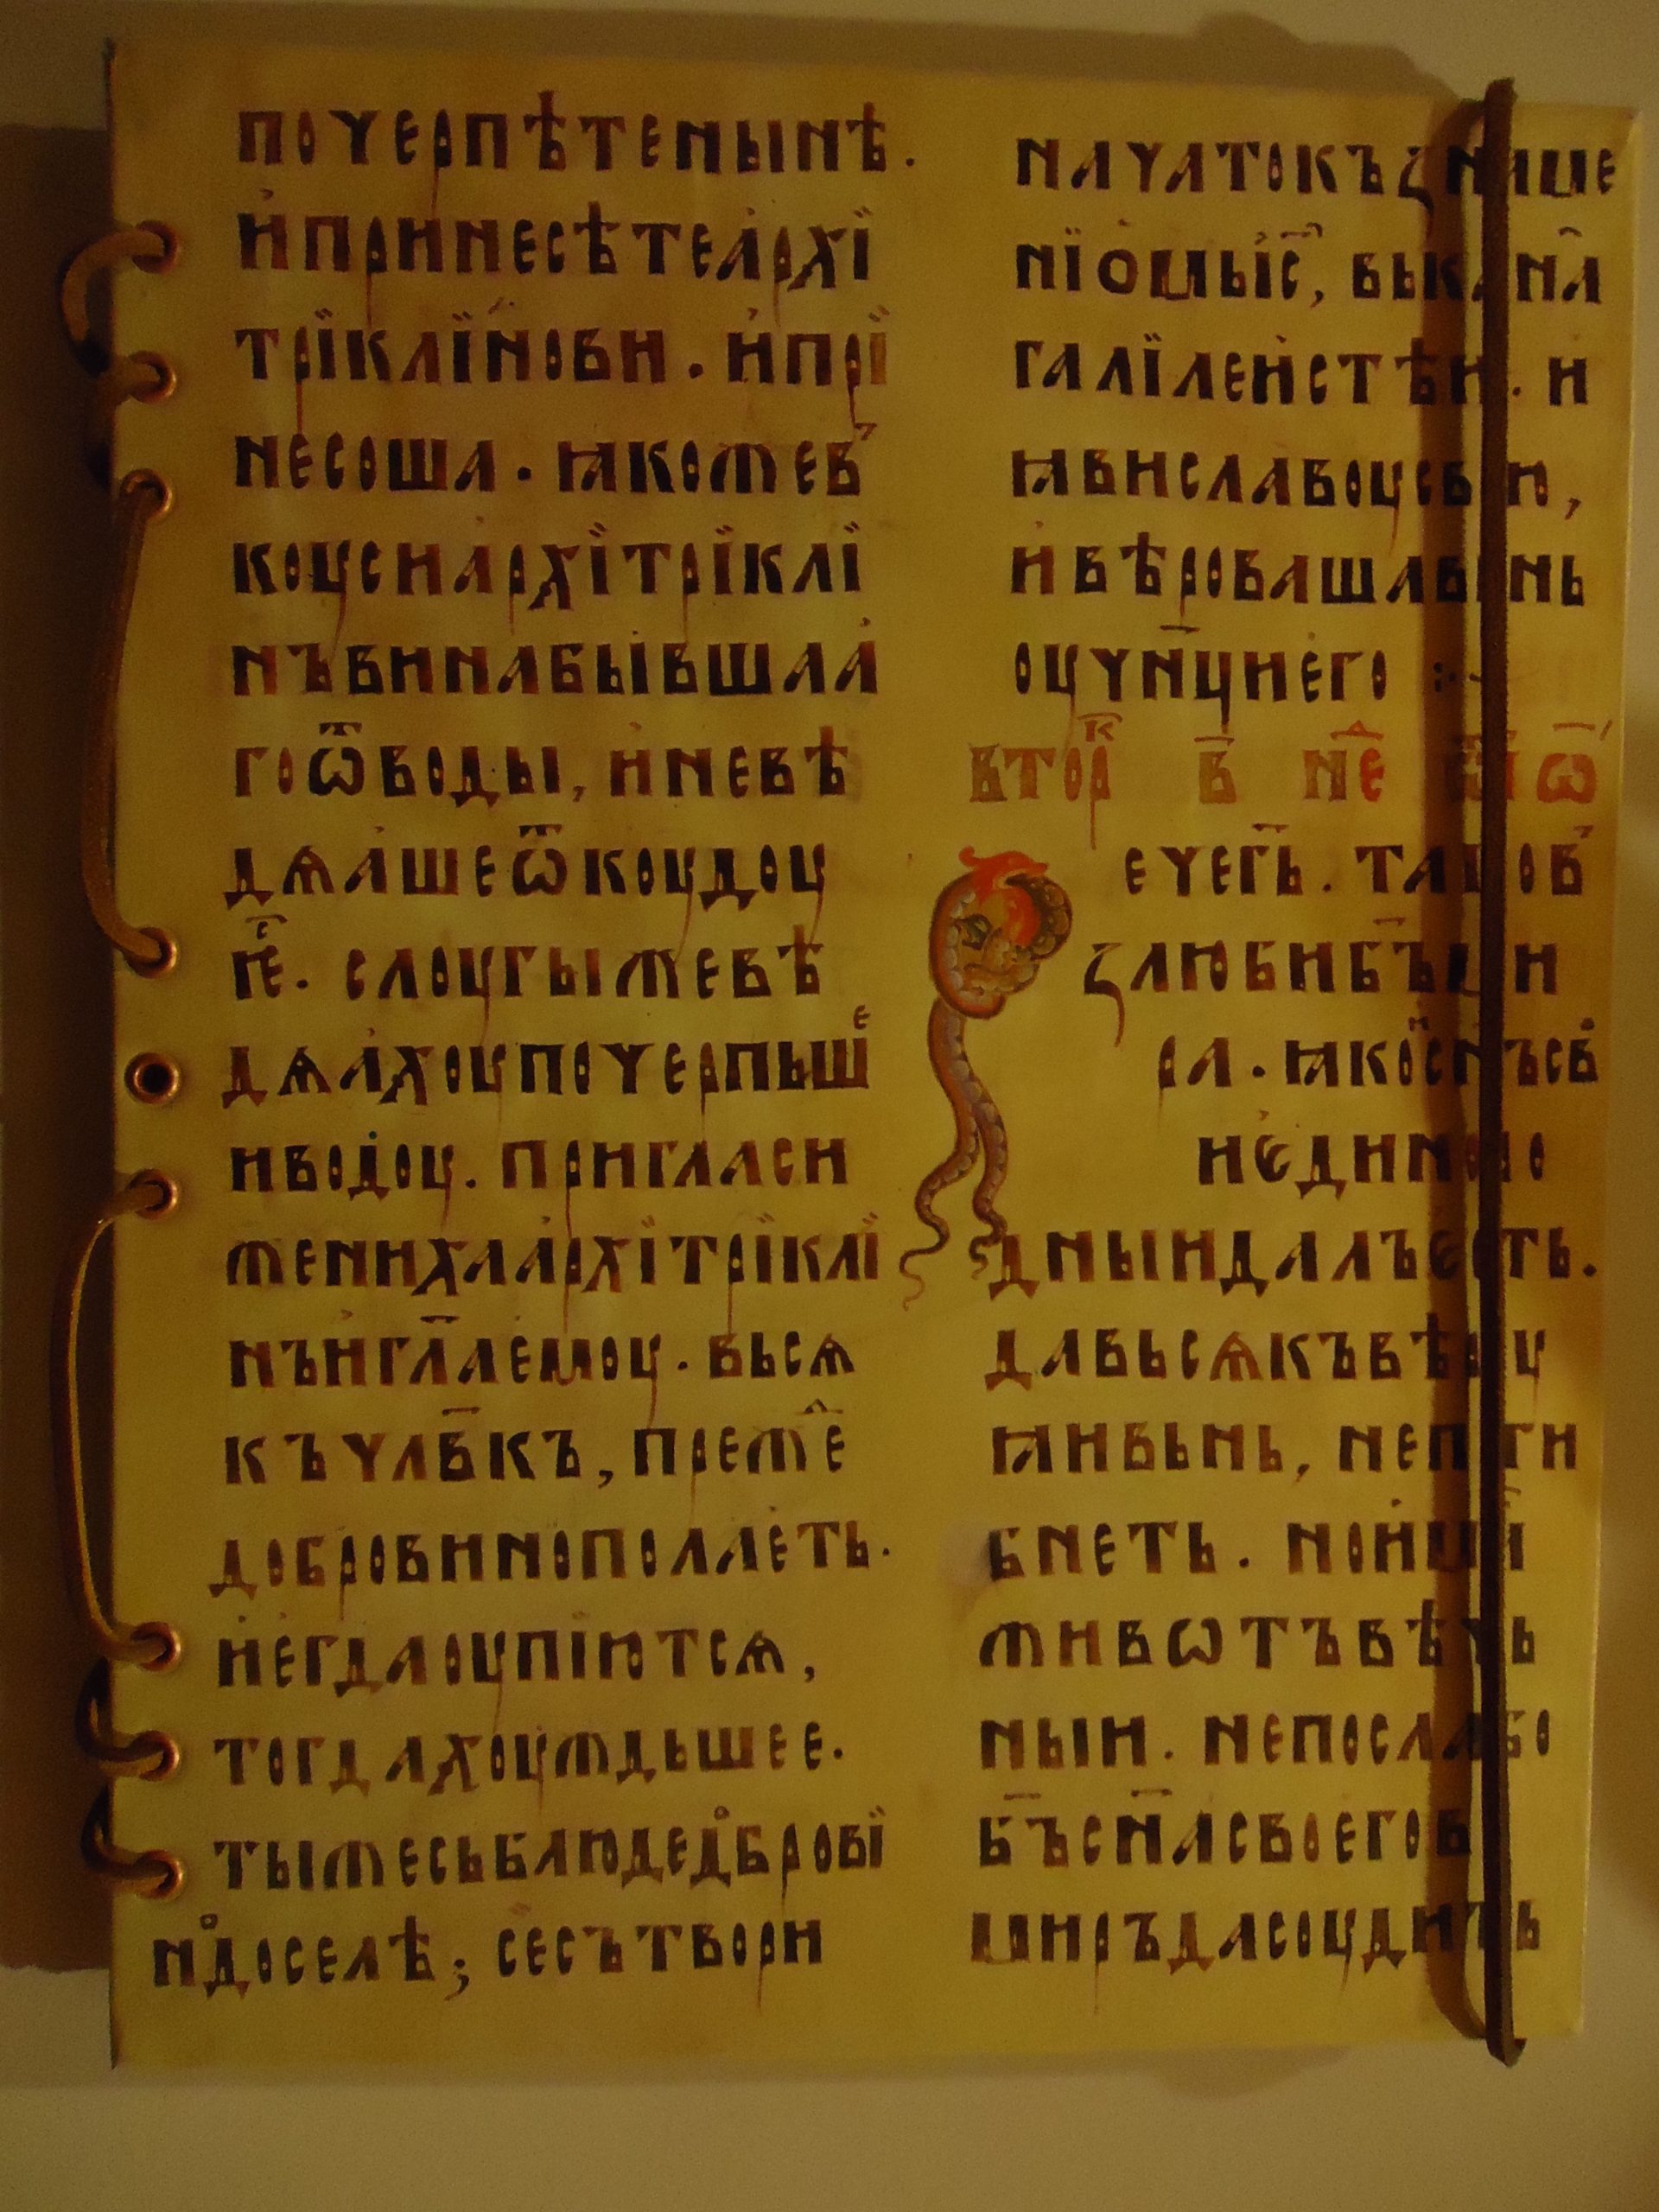 почерпѣтенынѣ.
и҆принесѣтеа҆рхї
трїклїновн. и҆прї
несоша. ꙗкожев
коусиа҆рхїтрїклї
нъвинабывшаа҆
гоѿводы, и҆невѣ
дѧа҆шеѿкоудоу
пⷭ҇е. слоугыжевѣ
дѧа҆хоупочерпьшеи
иводоу. пригласи
женихаа҆рхїтрїклї
нъи҆гл҃ае҆моу. вьсѧ
къчлв҃къ, преже
добровинополает҆ь.
и҆е҆гдаоупїютсѧ,
тогдахоуждьшее.
тыжесьблюдедобровї
нодоселѣ; сесътвори
начатокъꙁнаше
нїо҆мьїс҃, вькана
галїлеистѣи. и
ꙗвиславоусвою,
и҆вѣровашавьнь
оучн҃циег҆о :·
вторк в҃ не҃ ѿ ѡ
ечегь. тако в
ꙁлюбибг҃ъми
ра. ꙗкосн҃ъсв
не҆диноро
дныидалъе҆сть.
давьсѧкъвѣроу
ꙗивьнь, непоги
бнеть. нои҆мї
живѡтъвѣчь
ныи. непослабо
бг҃ъсн҃асвоегов
миръдасоудить